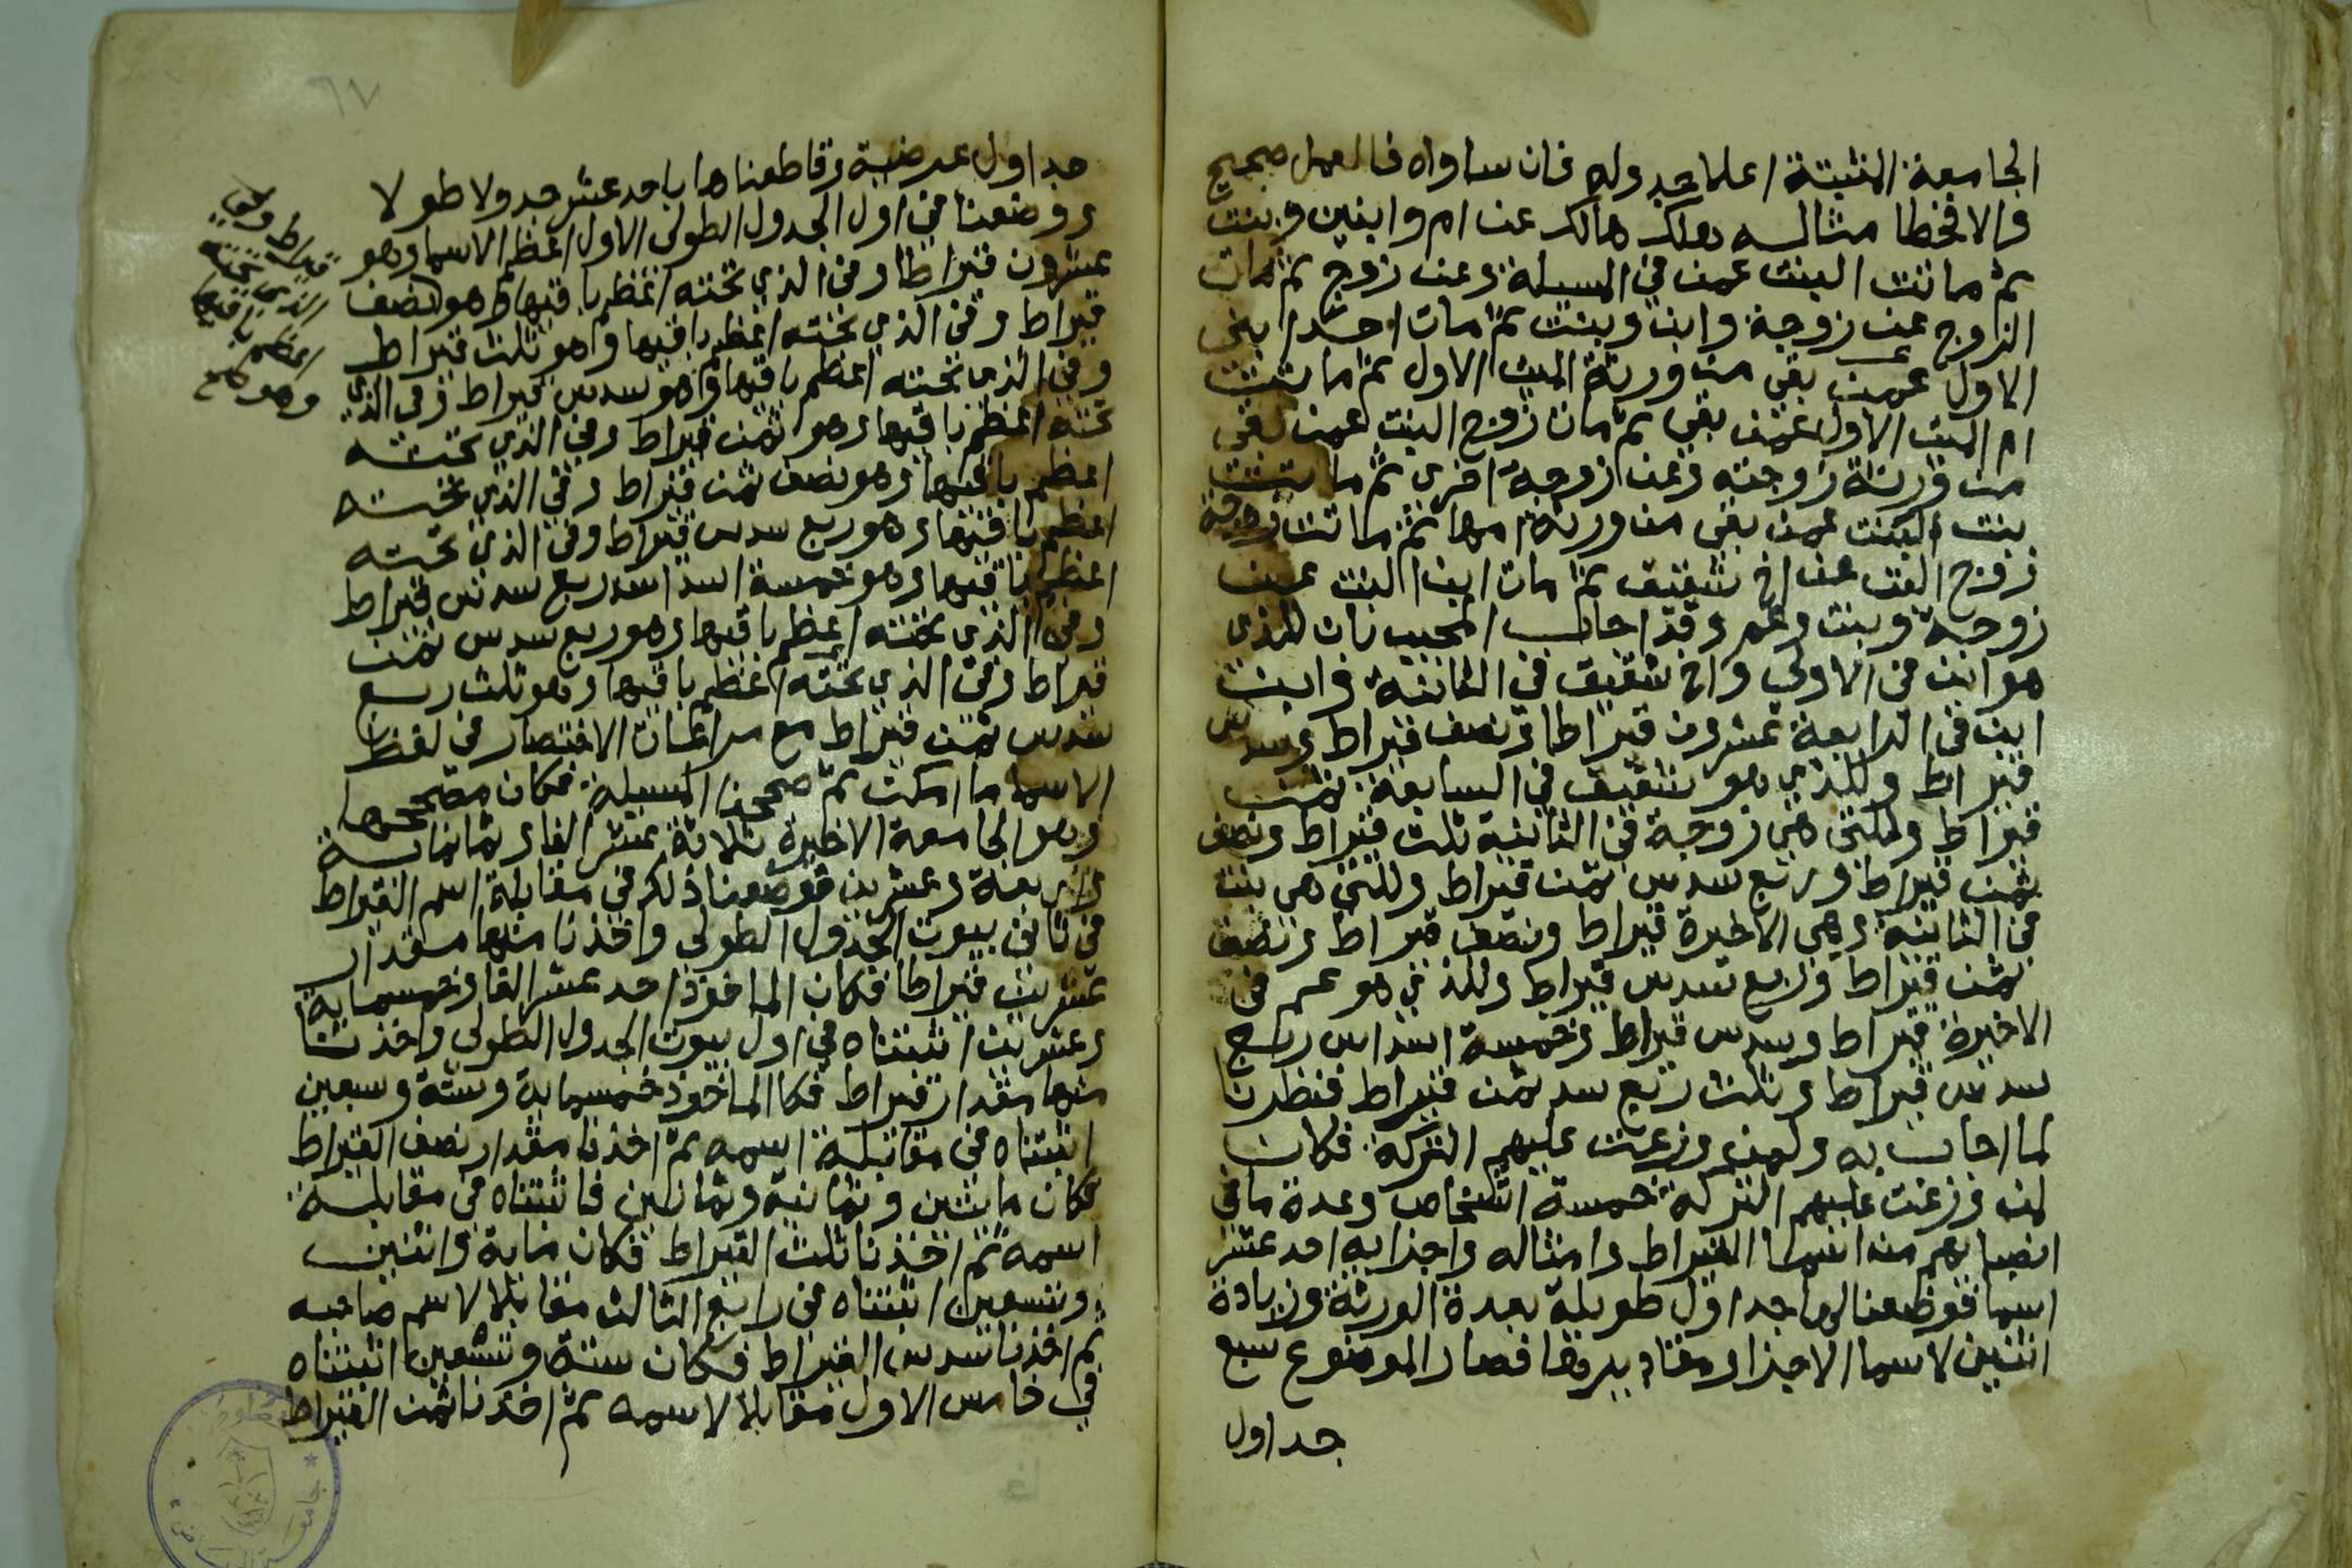 الجامعة المثبتة اعلا جدوله فان ساواه فالعمل صحيح
والا فخطا مثاله هلك هالك عن ام وابنين وبنت
ثم ماتت البنت عمن في المسيلة وعن زوج ثم مات
الزوج عن زوجة وابن وبنت ثم مات احد ابني
الاول عمن بقي من ورثة الميت الاول ثم ماتت
ام الميت الاول عمن بقي ثم مات زوج البنت عمن بقي
من ورثة زوجته وعن زوجة اخرى ثم ماتت
بنت البنت عمن بقي من ورثة امها ثم ماتت زوجة
زوج البنت عن اخ شقيق ثم مات ابن البنت عن
زوجة وبنت وعم وقد اجاب المجيب بان للذي
هو ابن في الاولى واخ شقيق في الثانية وابن
ابن في الرابعة عشرون قيراطا ونصف قيراط وسدس
قيراط وللذي هو شقيق في السابعة ثمن
قيراط وللتي هي زوجة في الثانية ثلث قيراط ونصف
ثمن قيراط وربع سدس ثمن قيراط وللتي هي بنت
في الثانية وهي الاخيرة قيراط ونصف قيراط ونصف
ثمن قيراط وربع سدس قيراط وللذي هو عم في
الاخيرة قيراط وسدس قيراط وخمسة اسداس ربع
سدس قيراط وثلث ربع سدس ثمن قيراط فنظرنا
لما اجاب به ولمن وزعت عليهم التركة فكان
لمن وزعت عليهم التركة خمسة اشخاص وعدة ما في
انصبايهم من اسما القيراط وامثاله واجزايه احد عشر
اسما فوضعنا لها جداول طويلة بعدة الورثة وزيادة
اثنين لاسما الاجزا ومقاديرها فصار الموضوع سبع
جداول
٦٧
جداول عرضية وقاطعناها باحد عشر جدولا طولا
ووضعنا في اول الجدول الطولى الاول اعظم الاسما وهو
عشرون قيراطا وفي الذي تحته اعظم باقيها وهو نصف
قيراط وفي الذي تحته اعظم باقيها وهو ثلث قيراط
وفي الذي تحته اعظم باقيها وهو سدس قيراط وفي الذي
تحته اعظم باقيها وهو ثمن قيراط وفي الذي تحته
اعظم باقيها وهو نصف ثمن قيراط وفي الذي تحته
اعظم باقيها وهو ربع سدس قيراط وفي الذي تحته
اعظم باقيها وهو خمسة اسداس ربع سدس قيراط
وفي الذي تحته اعظم باقيها وهو ربع سدس ثمن
قيراط وفي الذي تحته اعظم باقيها وهو ثلث ربع
سدس ثمن قيراط مع مراعات الاختصار في لفظ
الاسما ما امكن ثم صححنا المسيلة فكان مصححها
وهو الجامعة الاخيرة ثلاثة عشر الفا وثمانماية
واربعة وعشرين فوضعنا ذلك في مقابلة اسم القيراط
في ثاني بيوت الجدول الطولى واخذنا منها مقدار
عشرين قيراطا فكان الماخوذ احد عشر الفا وخمسماية
وعشرين اثبتناه في اول بيوت الجدول الطولى واخذنا
منها مقدار قيراط فكا الماخوذ خمسماية وستة وسبعين
اثبتناه في مقابلة اسمه ثم اخذنا مقدار نصف القيراط
فكان مايتين وثمانية وثمانين فاثبتناه في مقابلة
اسمه ثم اخذنا ثلث القيراط فكان ماية واثنين
وتسعين اثبتناه في رابع الثالث مقابلا لاسم صاحبه
ثم اخذنا سدس القيراط فكان ستة وتسعين اثبتناه
في خامس الاول مقابلا لاسمه ثم اخذنا ثمن القيراط
قيراط وفي
الذي تحته
اعظم باقيها
وهو